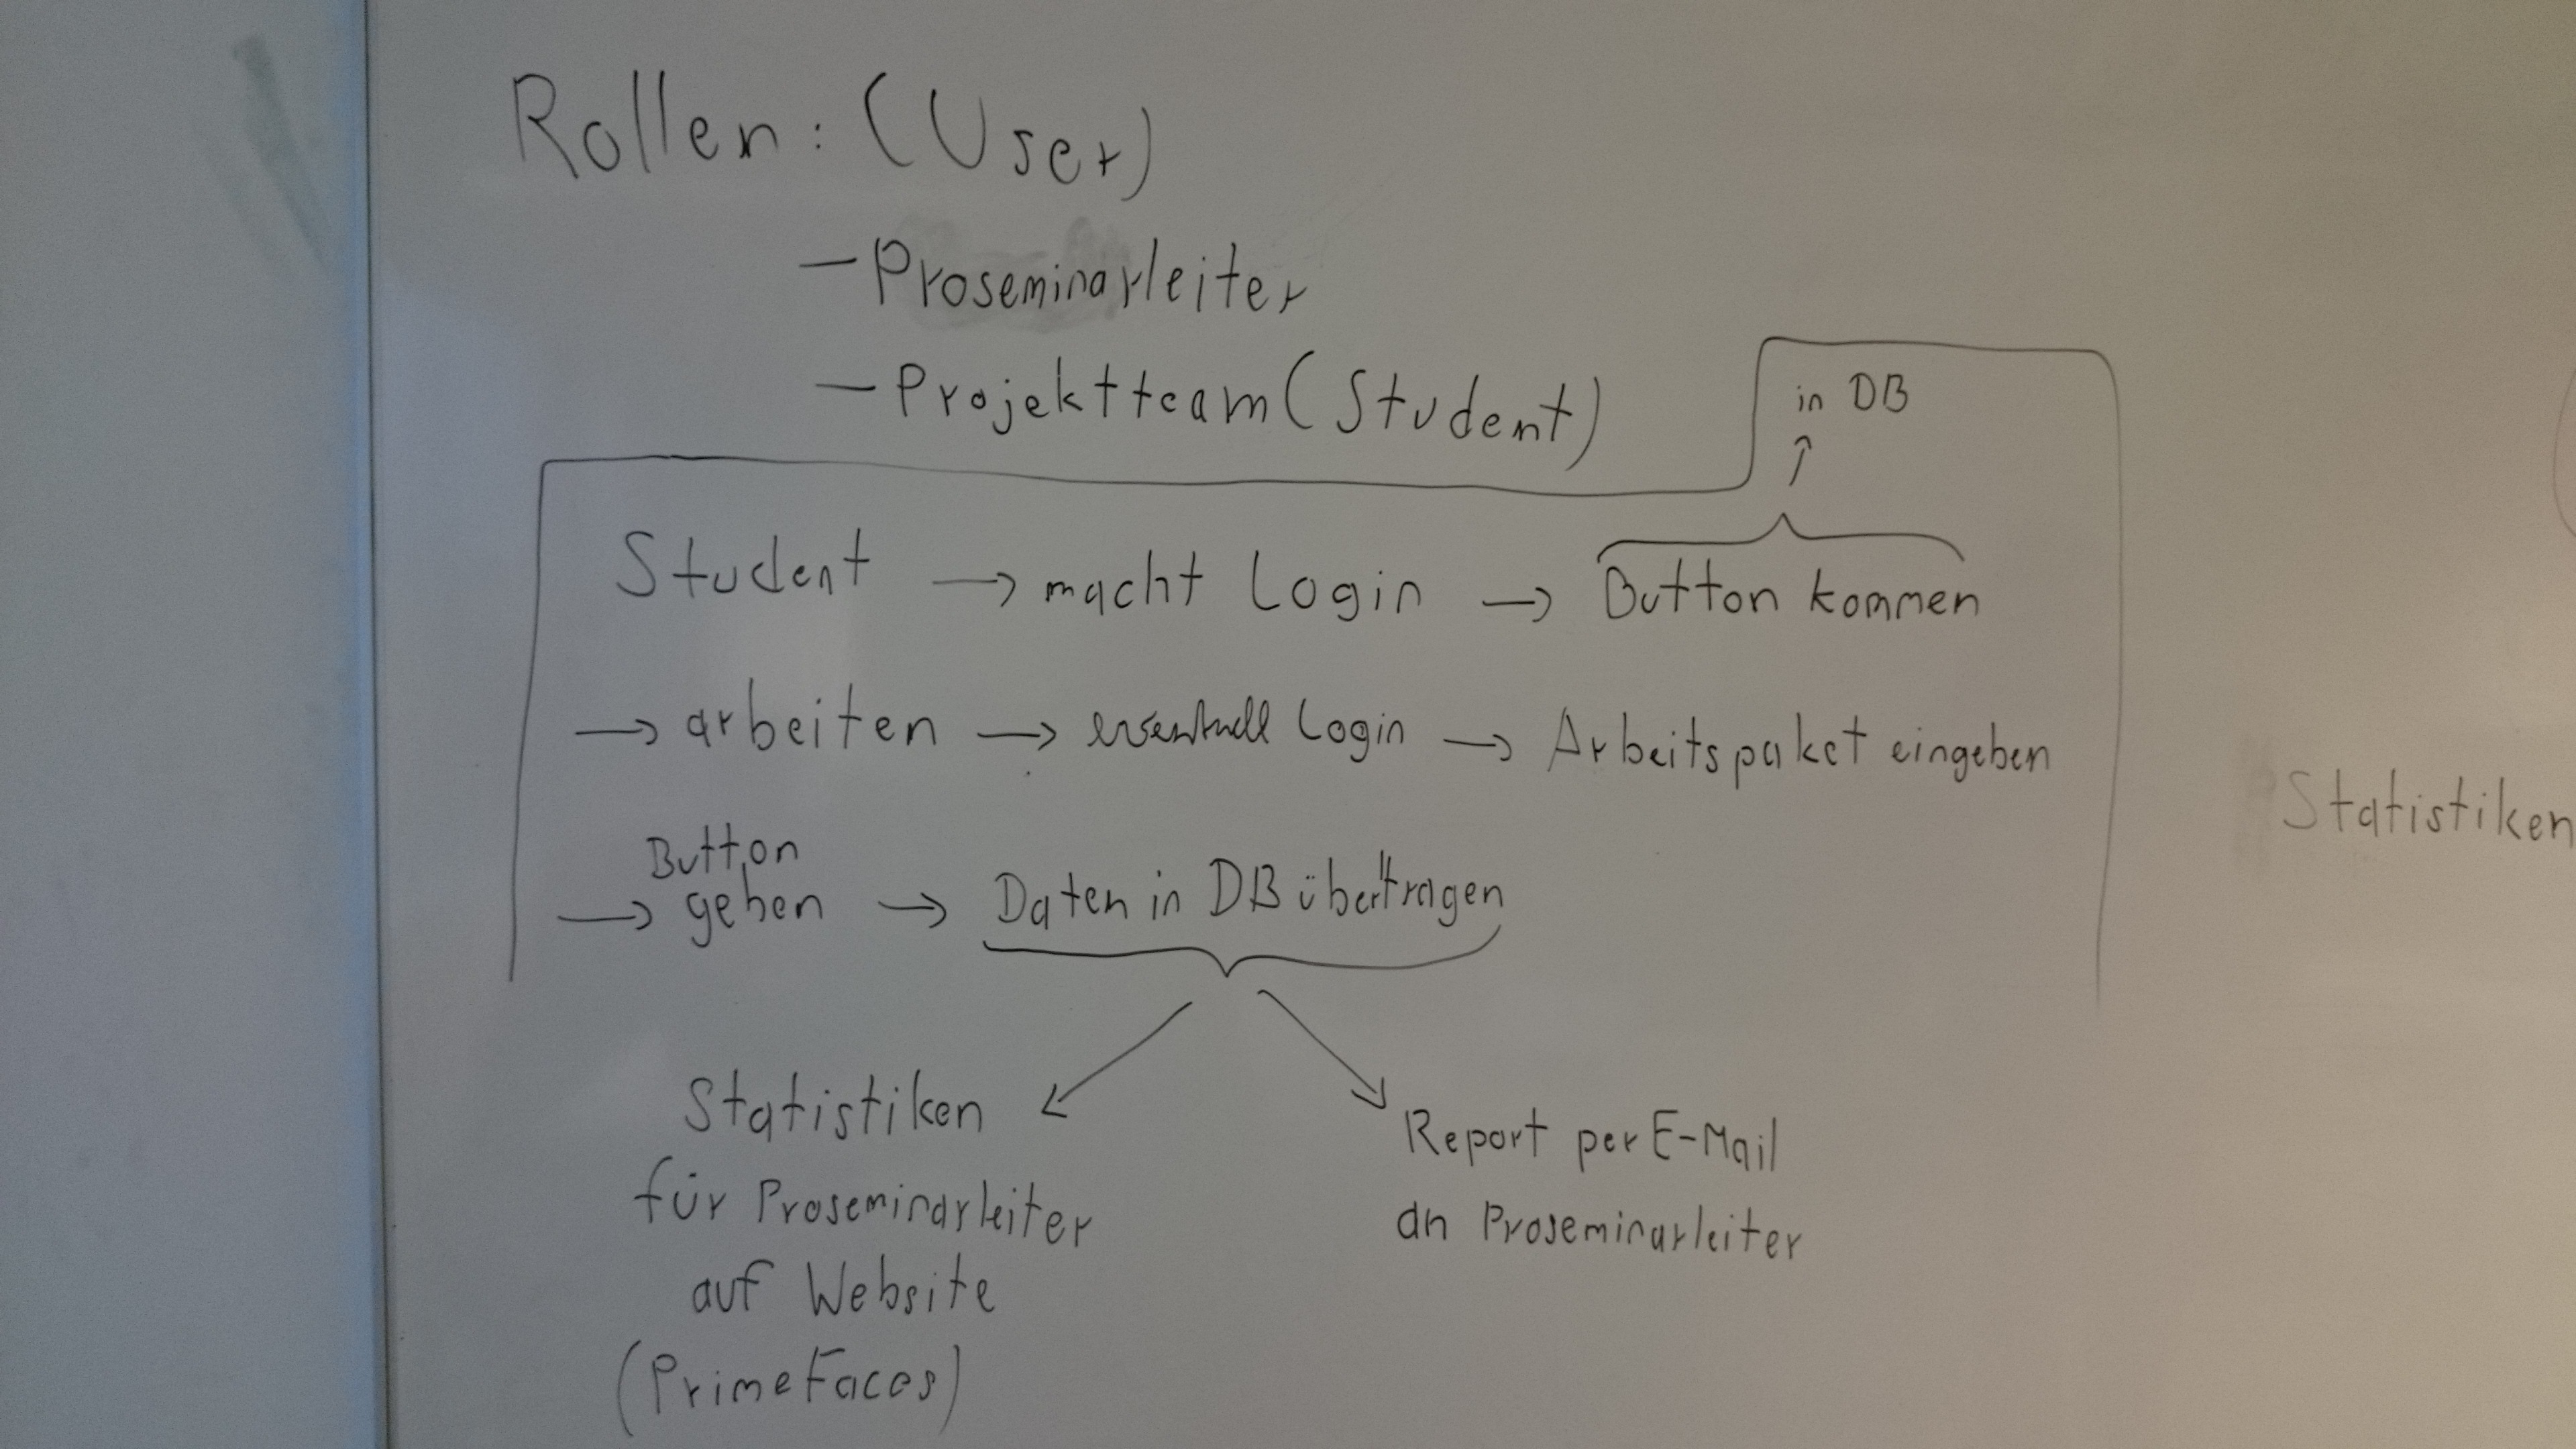 Rollen: (User)
- Proseminarleiter
- Projektteam (Student)
in DB
↑
Student → macht Login → Button kommen
→ arbeiten → eventuell Login → Arbeitspaket eingeben
Button
→ gehen → Daten in DB übertragen
Statistiken
für Proseminarleiter
auf Website
(PrimeFaces)
Report per E-Mail
an Proseminarleiter
Statistiken